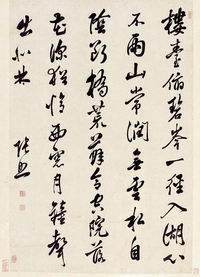 樓臺俯碧岑一徑入湖心
不雨山常潤無雲水自
陰斷橋荒蘚合空院落
花深猶憶西窗月鐘聲
出北林 張照